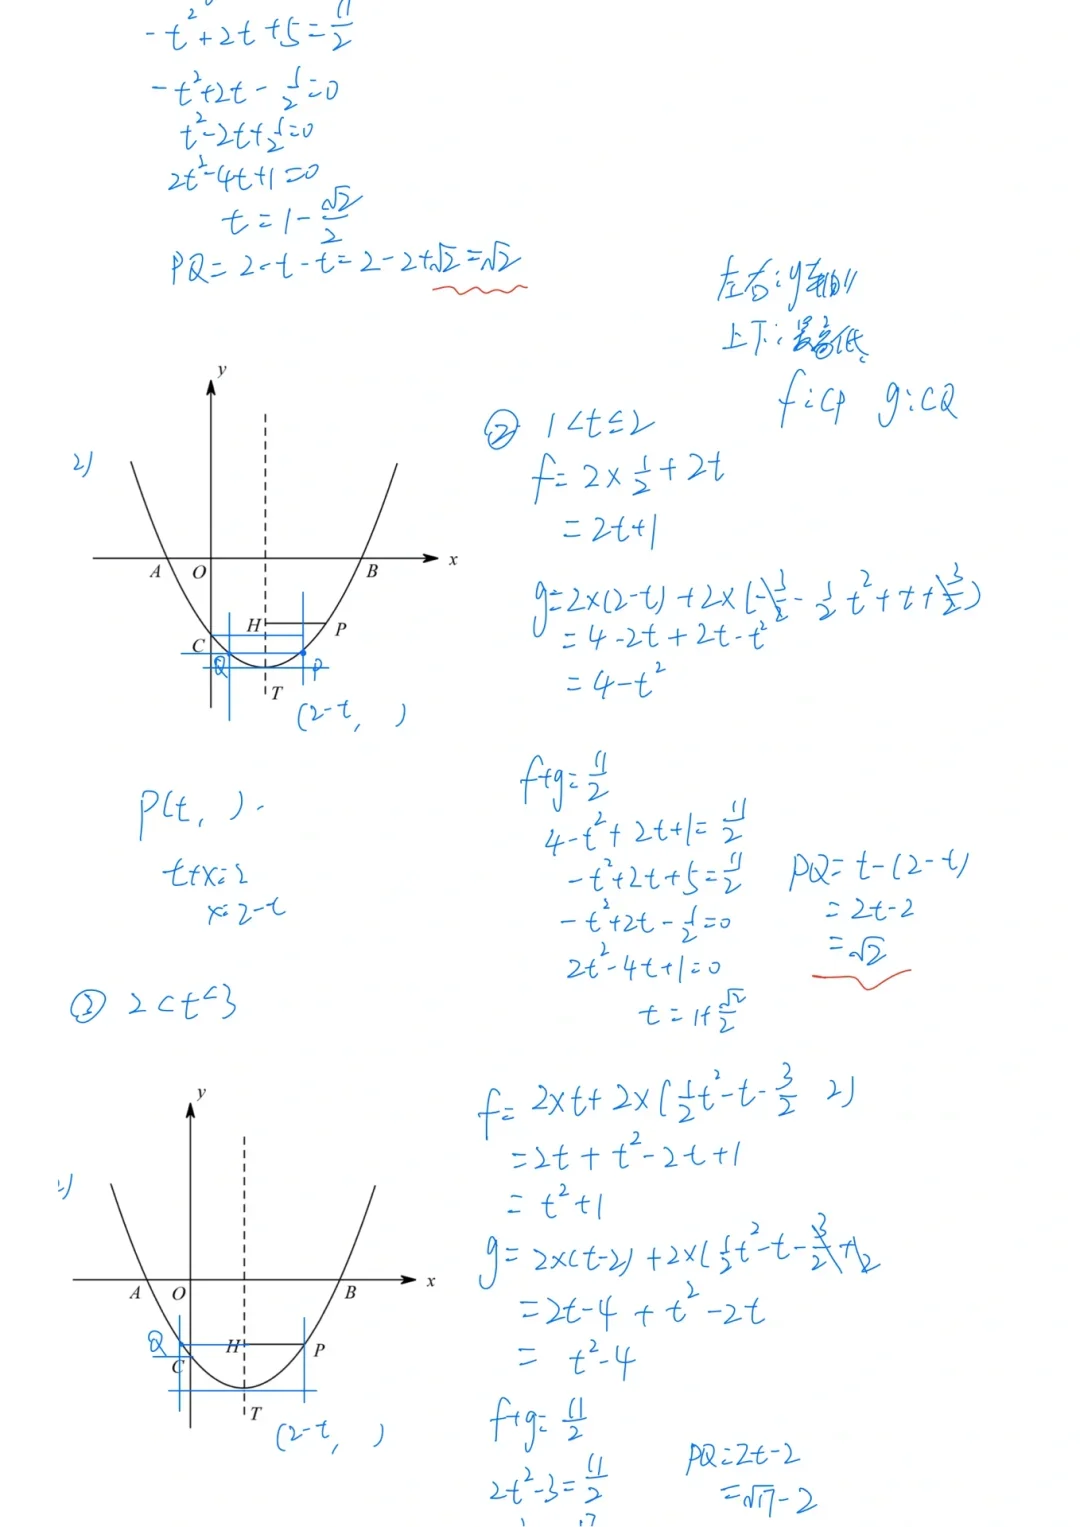 -t²+2t+5=11/2
-t²+2t-1/2=0
t²-2t+1/2=0
2t²-4t+1=0
t=1-√2/2
PQ=2-t-t=2-2+√2=√2
左右:y轴
上下:最高低
f:CP g:CQ
2)
y
x
A O B
H P
C
Q P
T
(2-t, )
② 1<t≤2
f=2×1/2+2t
=2t+1
g=2×(2-t)+2×(-3/2-1/2t²+t+3/2)
=4-2t+2t-t²
=4-t²
P(t, ).
t+x=2
x=2-t
f+g=11/2
4-t²+2t+1=11/2
-t²+2t+5=11/2
-t²+2t-1/2=0
2t²-4t+1=0
t=1+√2/2
PQ=t-(2-t)
=2t-2
=√2
③ 2<t<3
y
x
A O B
Q H P
C
T
(2-t, )
f=2×t+2×(1/2t²-t-3/2 2)
=2t+t²-2t+1
=t²+1
g=2×(t-2)+2×(1/2t²-t-3/2+3/2
=2t-4+t²-2t
=t²-4
f+g=11/2
2t²-3=11/2
PQ=2t-2
=√17-2